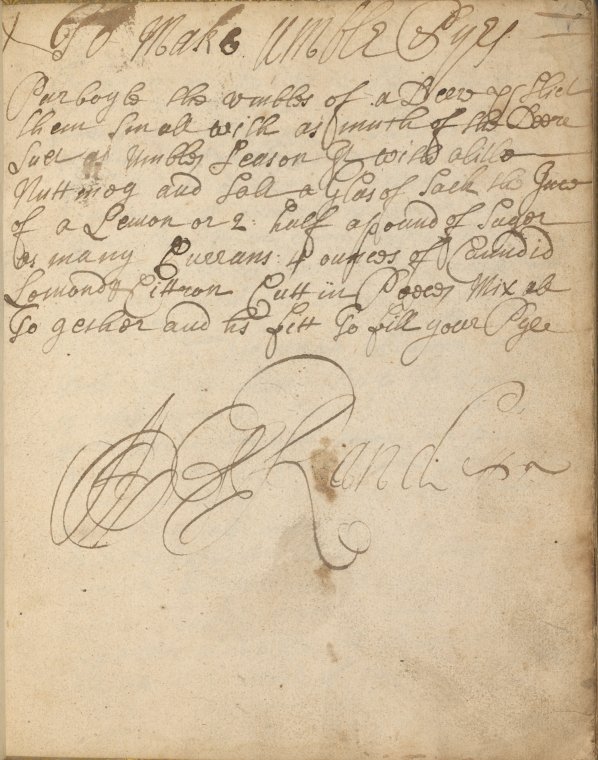 To Make umble Pyes
Parboyle the umbles of a Deere & Shed
them Small with as much of the Deere
Suet as Umbles Season it with a litle
Nuttmeg and Salt a Glas of Sack the Juce
of a Lemon or 2 half a pound of Suger
as many Currans 4 ounces of Candid
Lemond & Cittron Cutt in Peeces Mix all
To gether and tis fitt To fill your Pye